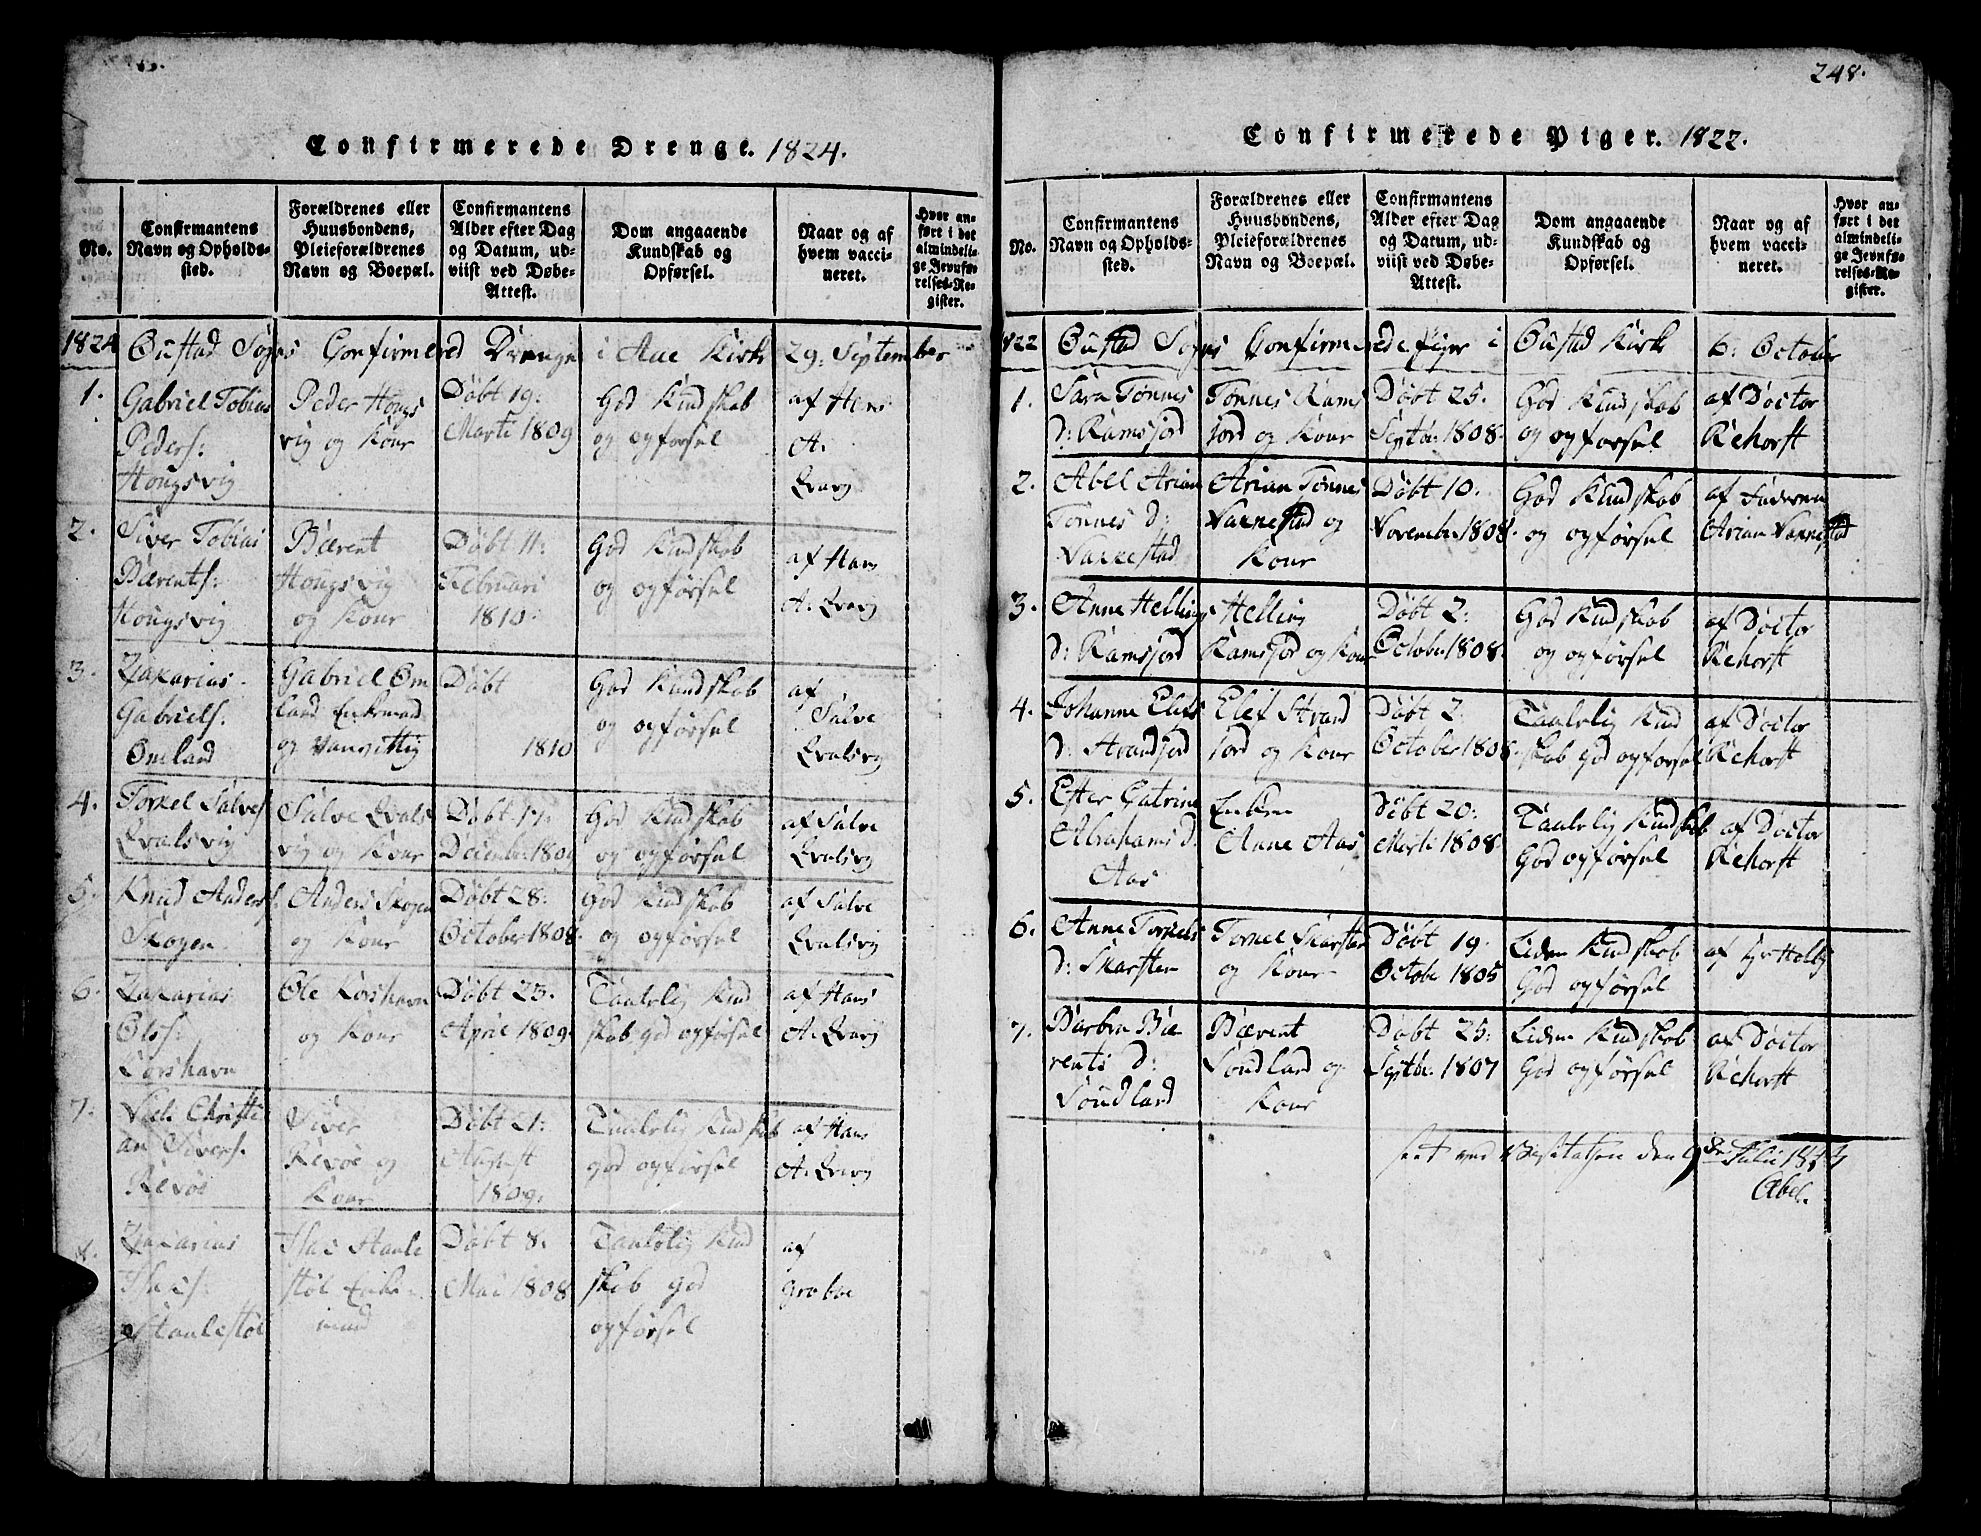 Confirmerede Drenge. 1824.
No.
Confirmantens
Navn og Opholds-
sted.
Forældrenes eller
Huusbondens,
Pleieforældrenes
Navn og Boepæl.
Confirmantens
Alder efter Dag
og Datum, ud-
viist ved Døbe-
Attest.
Dom angaaende
Kundskab og
Opførsel.
Naar og af
hvem vacci-
neret.
Hvor an-
ført i det
almindeli-
ge Jevnfø-
relses-Re-
gister.
1824 Oustad Sogns Confirmered Drenge i Aue Kirke 29: September
1. Gabriel Tobias
Peders:
Hougsvig
Peder Hougs
vig og Kone
Døbt 19:
Marti 1809
God Kundskab
og opførsel
af Hans
A.
Qvavig
2. Siver Tobias
Bærents:
Hougsvig
Bærent
Hougsvig
og Kone
Døbt 11:
Februari
1810:
God Kundskab
og opførsel
af Hans
A. Qvavig
3. Zakarias
Gabriels:
Omland
Gabriel Om
land Enkemand
og vanvittig
Døbt
1810
God Kundskab
og opførsel
af
Salve
Qvalsvig
4. Torkel Salves
Qvalsvig
Salve Qvals
vig og Kone
Døbt 17:
December 1809
God Kundskab
og opførsel
af Salve
Qvalsvig
5. Knud Anders:
Skogen
Anders Skogen
og Kone
Døbt 28:
October 1808
God Kundskab
og opførsel
af Salve
Qvalsvig
6. Zakarias
Ols:
Korshavn
Ole Korshavn
og Kone
Døbt 23.
April 1809.
Taalelig Kund
skab god opførsel
af Hans
A. Qvavig
7. Niels Christi
an Sivers.
Revøe
Siver
Revøe og
Kone
Døbt 21:
August
1809.
Taalelig Kundskab
god opførsel
af Hans
A. Qvavig
8. Zakarias
Staalestøl
støl Enke
mand
Døbt 8:
Mai 1808
Taalelig Kund
skab god
opførsel
af
248.
Confirmerede Piger. 1822.
No.
Confirmantens
Navn og Opholds-
sted.
Forældrenes eller
Huusbondens,
Pleieforældrenes
Navn og Boepæl.
Confirmantens
Alder efter Dag
og Datum, ud-
viist ved Døbe-
Attest.
Dom angaaende
Kundskab og
Opførsel.
Naar og af
hvem vacci-
neret.
Hvor an-
ført i det
almindeli-
ge Jevnfø-
relses-Re-
gister.
1822 Oustad Sogns Confirmerede piger i Oustad Kirke 6: October
1. Sara Tønnes
d: Ramsjord
Tønnes Rams
jord og Kone
Døbt 25.
Septbr: 1808.
God Kundskab
og opførsel
af Doctor
Rehorst
2. Abel Arian
Tønnes d:
Vannestad
Arian Tønnes
Vannestad og
Kone
Døbt 10:
November 1808.
God Kundskab
og opførsel
af Faderen
Arian Vannestad
3. Anne Hellings
d: Ramsjord
Helling
Ramsjord og Kone
Døbt 2:
October 1808.
God Kundskab
og opførsel
af Doctor
Rehorst
4. Johanne Elefs
d: Strandjord
Elef Strand
jord og Kone
Døbt 2:
October 1808.
Taalelig Kund
skab God opførsel
af Doctor
Rehorst
5. Ester Catrine
Abrahams d:
Aas
Enken
Anne Aas
Døbt 20:
Marti 1808
Taalelig Kundskab
God opførsel
af Doctor
Rehorst
6. Anne Torkels
d: Skarsten
Torkel Skarsten
og Kone
Døbt 19.
October 1805
Liden Kundskab
God opførsel
af
7. Barbra Bæ
rents d:
Soudland
Bærent
Soudland og
Kone
Døbt 25:
Septbr: 1807
Liden Kundskab
God opførsel
af Doctor
Rehorst
seet ved Visitatsen den 9de Julii
Abel.